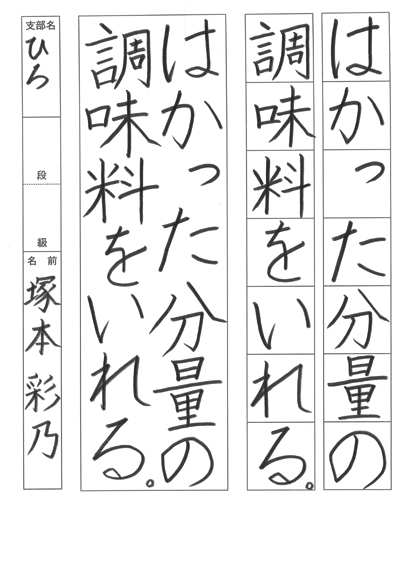 はかった分量の
調味料をいれる。
はかった分量の
調味料をいれる。
支部名
ひろ
段
級
名前
塚本彩乃